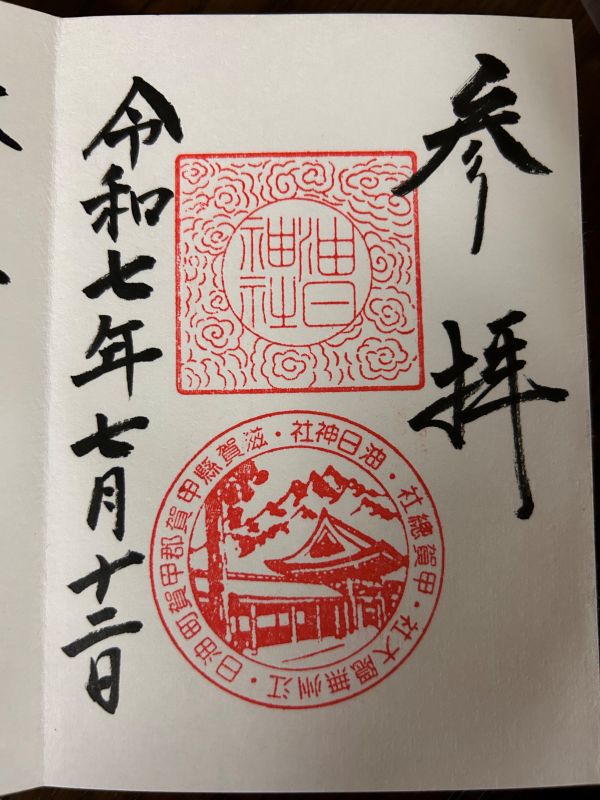 参拝
油日神社
油日神社・滋賀縣甲賀郡甲賀町油日・江州無隠大社・甲賀總社・
令和七年七月十二日